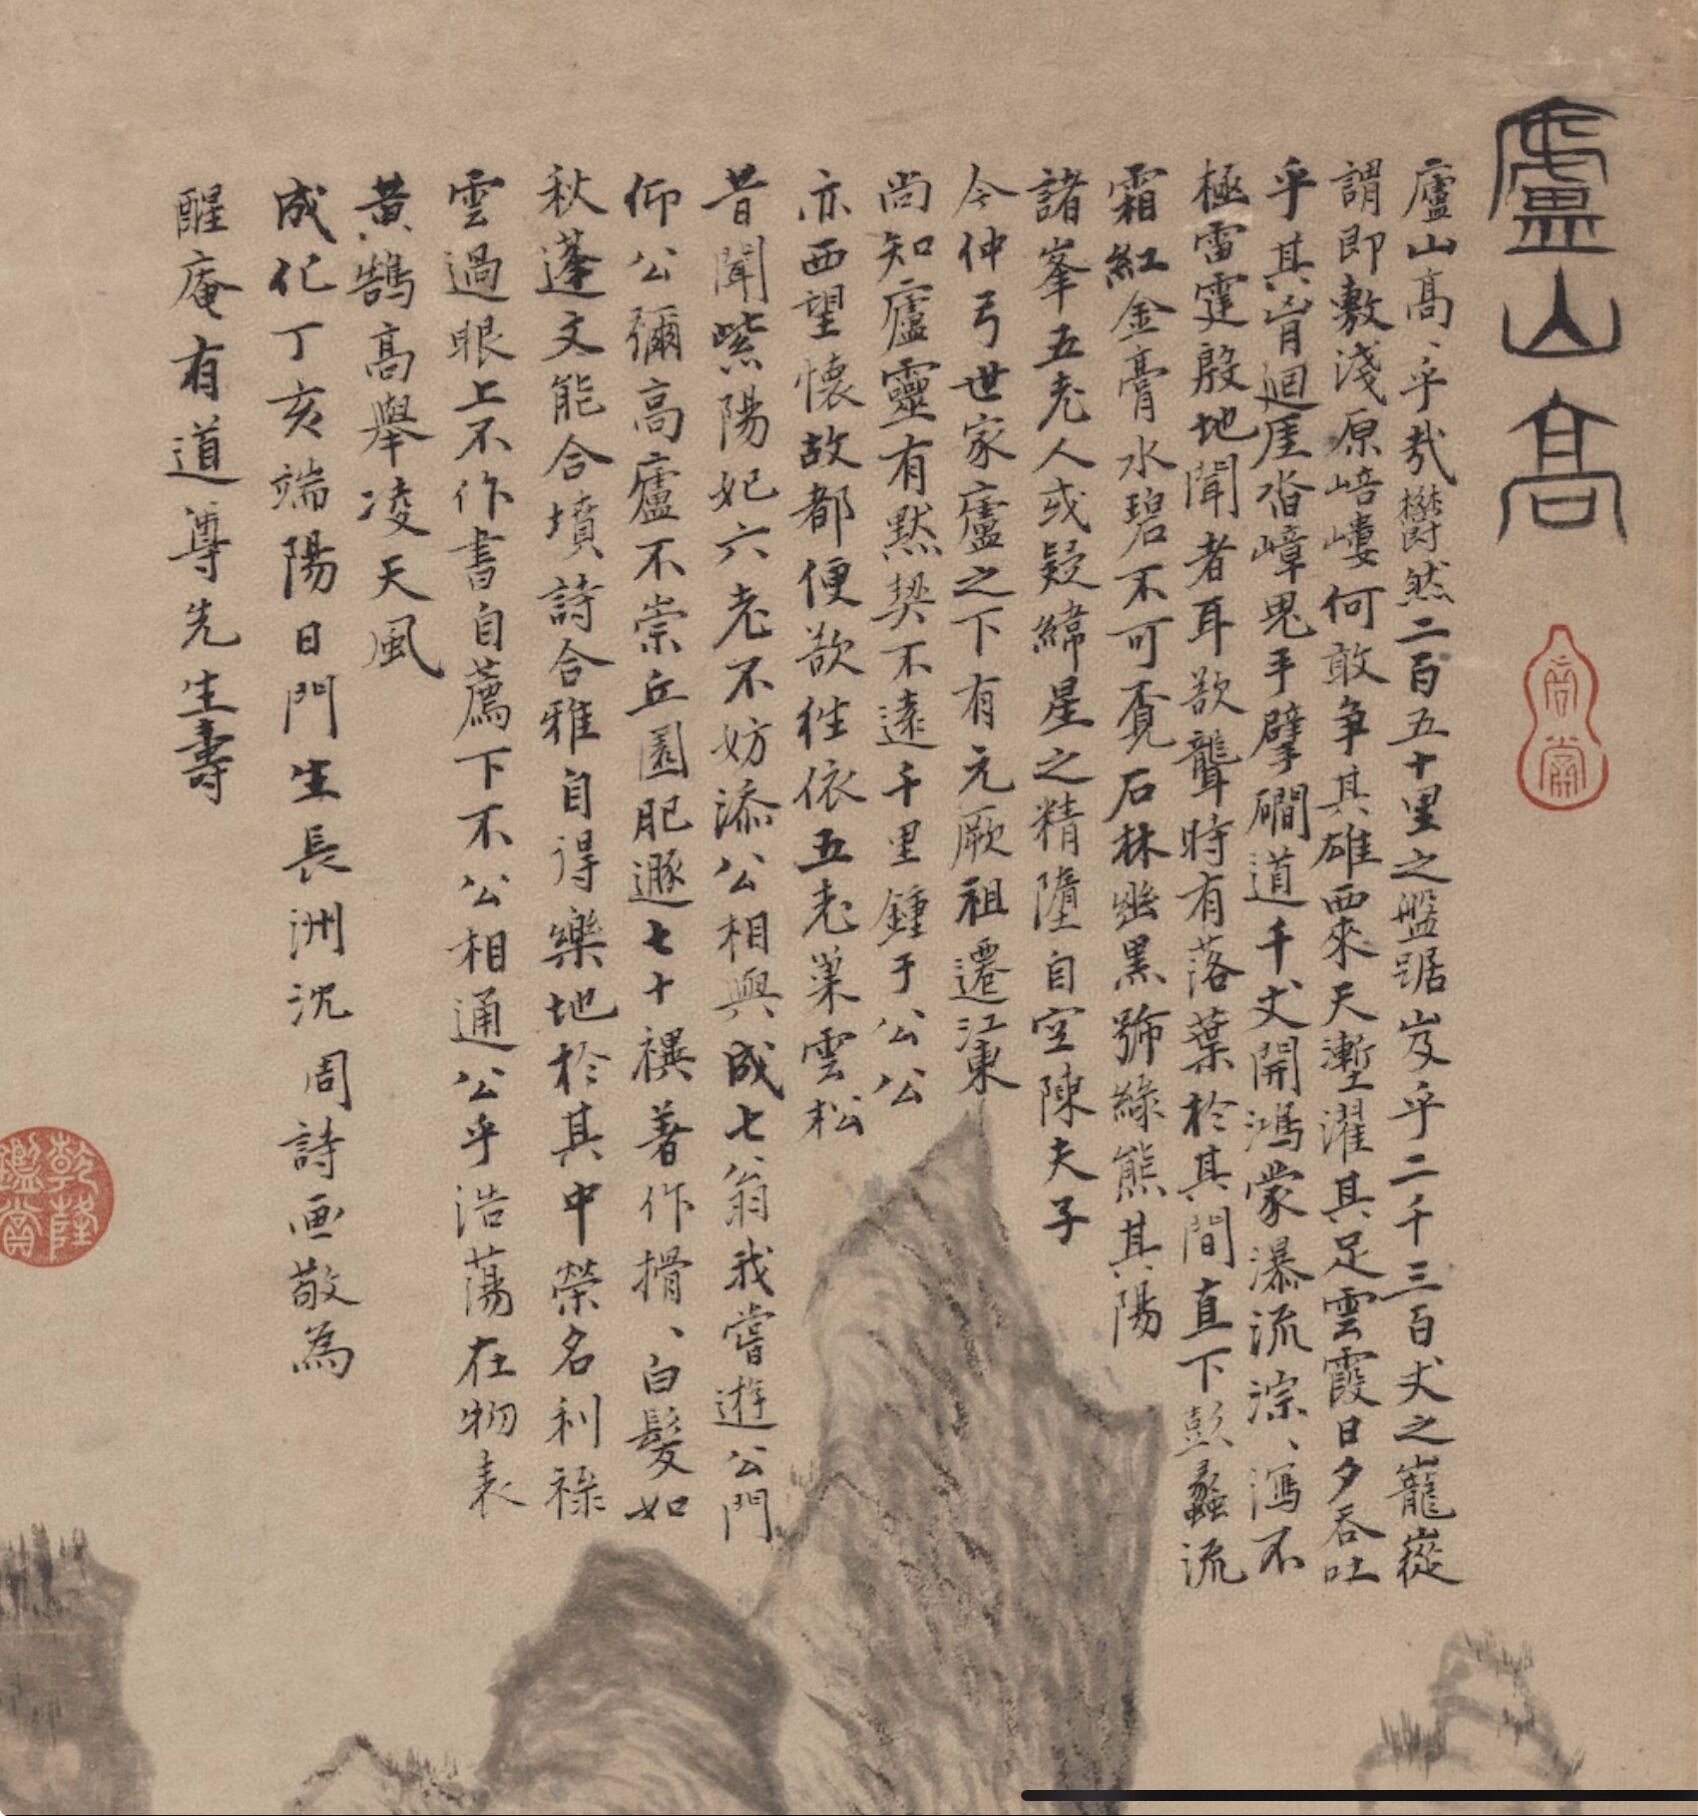 廬山高
廬山高、乎哉欝然二百五十里之盤踞岌乎二千三百丈之巃嵸
謂即敷淺原嵭嶁何敢争其雄西來天塹濯其足雲霞日夕吞吐
乎其胷廻厓沓嶂鬼手擘磵道千丈開鴻蒙瀑流淙、瀉不
極雷霆殷地聞者耳欲聾時有落葉於其間直下彭蠡流
霜紅金膏水碧不可覔石林幽黒號綠熊其陽
諸峯五老人或疑緯星之精隨自空陳夫子
今仲弓世家廬之下有元厥祖遷江東
尚知廬靈有默契不遠千里鍾于公公
亦西望懷故都便欲徃依五老巢雲松
昔聞紫陽妃六老不妨添公相與成七、翁我嘗遊公門
仰公彌高廬不崇丘園肥遯七十禩著作搰、白髮如
秋蓬文能合墳詩合雅自得樂地於其中榮名利祿
雲過眼上不作書自薦下不公相通公乎浩蕩在物表
黄鵠高舉凌天風
成化丁亥端陽日門生長洲沈周詩画敬為
醒庵有道尊先生壽
乾隆鑑賞